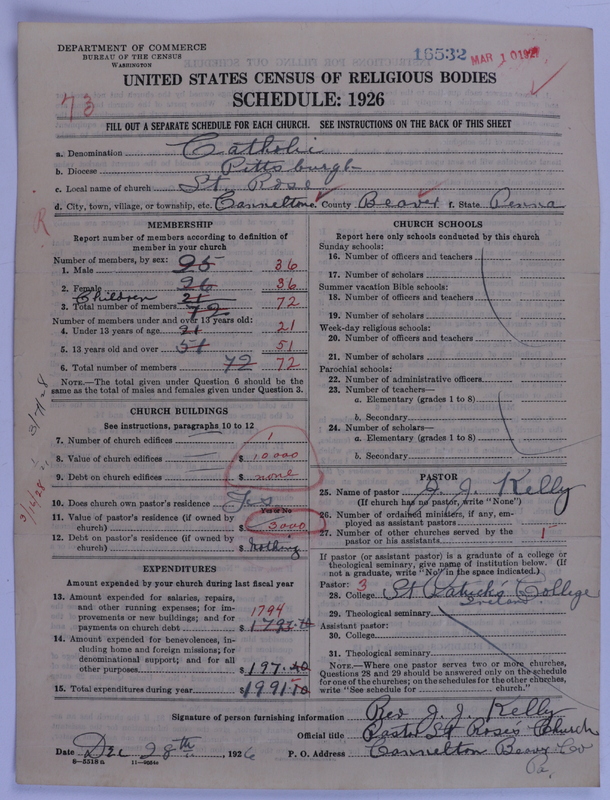 DEPARTMENT OF COMMERCE
BUREAU OF THE CENSUS
WASHINGTON
16532 MAR 10 1927
UNITED STATES CENSUS OF RELIGIOUS BODIES
73
SCHEDULE: 1926
FILL OUT A SEPARATE SCHEDULE FOR EACH CHURCH. SEE INSTRUCTIONS ON THE BACK OF THIS SHEET
a. Denomination Catholic
b. Diocese Pittsburgh
c. Local name of church St. Rose
d. City, town, village, or township, etc. Cannelton County Beaver f. State Penna
R
MEMBERSHIP
Report number of members according to definition of
member in your church
Number of members, by sex:
1. Male 25 36
2. Female 26 36
Children 21
3. Total number of members 72 72
Number of members under and over 13 years old:
4. Under 13 years of age 21 21
5. 13 years old and over 51 51
6. Total number of members 72 72
NOTE.—The total given under Question 6 should be the
same as the total of males and females given under Question 3.
CHURCH BUILDINGS
See instructions, paragraphs 10 to 12
7. Number of church edifices 1
8. Value of church edifices $ 10000
9. Debt on church edifices $ none
10. Does church own pastor's residence Yes
Yes or No
11. Value of pastor's residence (if owned by
church) $ 3000
12. Debt on pastor's residence (if owned by
church) $ Nothing
EXPENDITURES
Amount expended by your church during last fiscal year
13. Amount expended for salaries, repairs,
and other running expenses; for im-
provements or new buildings; and for
payments on church debt 1794
14. Amount expended for benevolences, in-
cluding home and foreign missions; for
denominational support; and for all
other purposes $ 197.
15. Total expenditures during year $ 1991
CHURCH SCHOOLS
Report here only schools conducted by this church
Sunday schools:
16. Number of officers and teachers
17. Number of scholars
Summer vacation Bible schools:
18. Number of officers and teachers
19. Number of scholars
Week-day religious schools:
20. Number of officers and teachers
21. Number of scholars
Parochial schools:
22. Number of administrative officers
23. Number of teachers—
a. Elementary (grades 1 to 8)
b. Secondary
24. Number of scholars—
a. Elementary (grades 1 to 8)
b. Secondary
PASTOR
25. Name of pastor J. J. Kelly
(If church has no pastor, write "None")
26. Number of ordained ministers, if any, em-
ployed as assistant pastors
27. Number of other churches served by the
pastor or his assistants 1
If pastor (or assistant pastor) is a graduate of a college or
theological seminary, give name of institution below. (If
not a graduate, write "No" in the space indicated.)
Pastor: 3
28. College St Patricks College
Ireland
29. Theological seminary
Assistant pastor:
30. College
31. Theological seminary
NOTE.—Where one pastor serves two or more churches,
Questions 28 and 29 should be answered only on the schedule
for one of the churches; on the schedules for the other churches,
write "See schedule for church."
Signature of person furnishing information Rev J. J. Kelly
Official title Pastor St Rose's Church
Date Dec 28th, 1926 P. O. Address Cannelton Beaver Co
Pa.